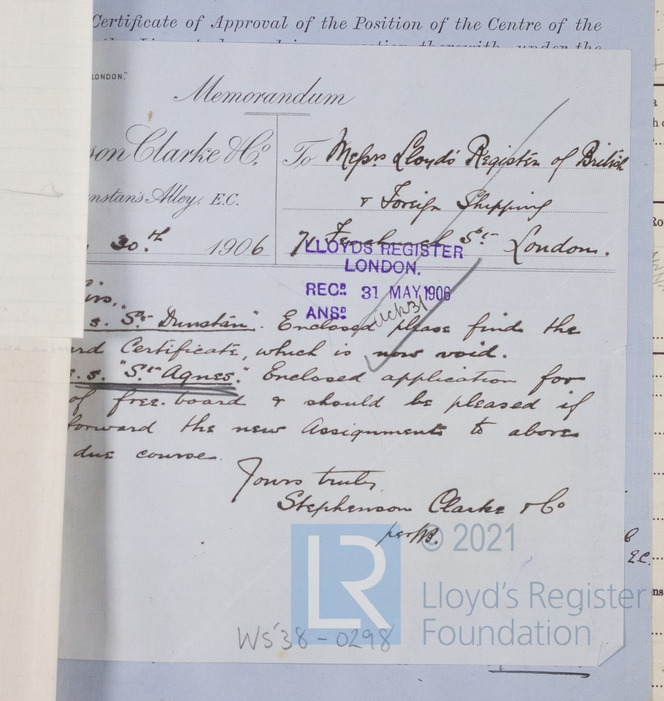 Certificate of Approval of the Position of the Centre of the
LONDON."
Memorandum
son Clarke & Co.
To Messrs Lloyd's Register of British
& Foreign Shipping
nstan's Alley, E.C.
30th 1906
71 Fenchurch St. London.
LLOYDS REGISTER
LONDON.
RECD. 31 MAY 1906
ANSD.
irs,
s. "St Dunstan". Enclosed please find the
rd Certificate, which is now void.
s. s. "St Agnes." Enclosed application for
of free-board & should be pleased if
forward the new Assignments to above
due course.
Yours truly,
Stephenson Clarke & Co
per
© 2021
LR
Lloyd's Register
Foundation
E.C.
WS38-0298